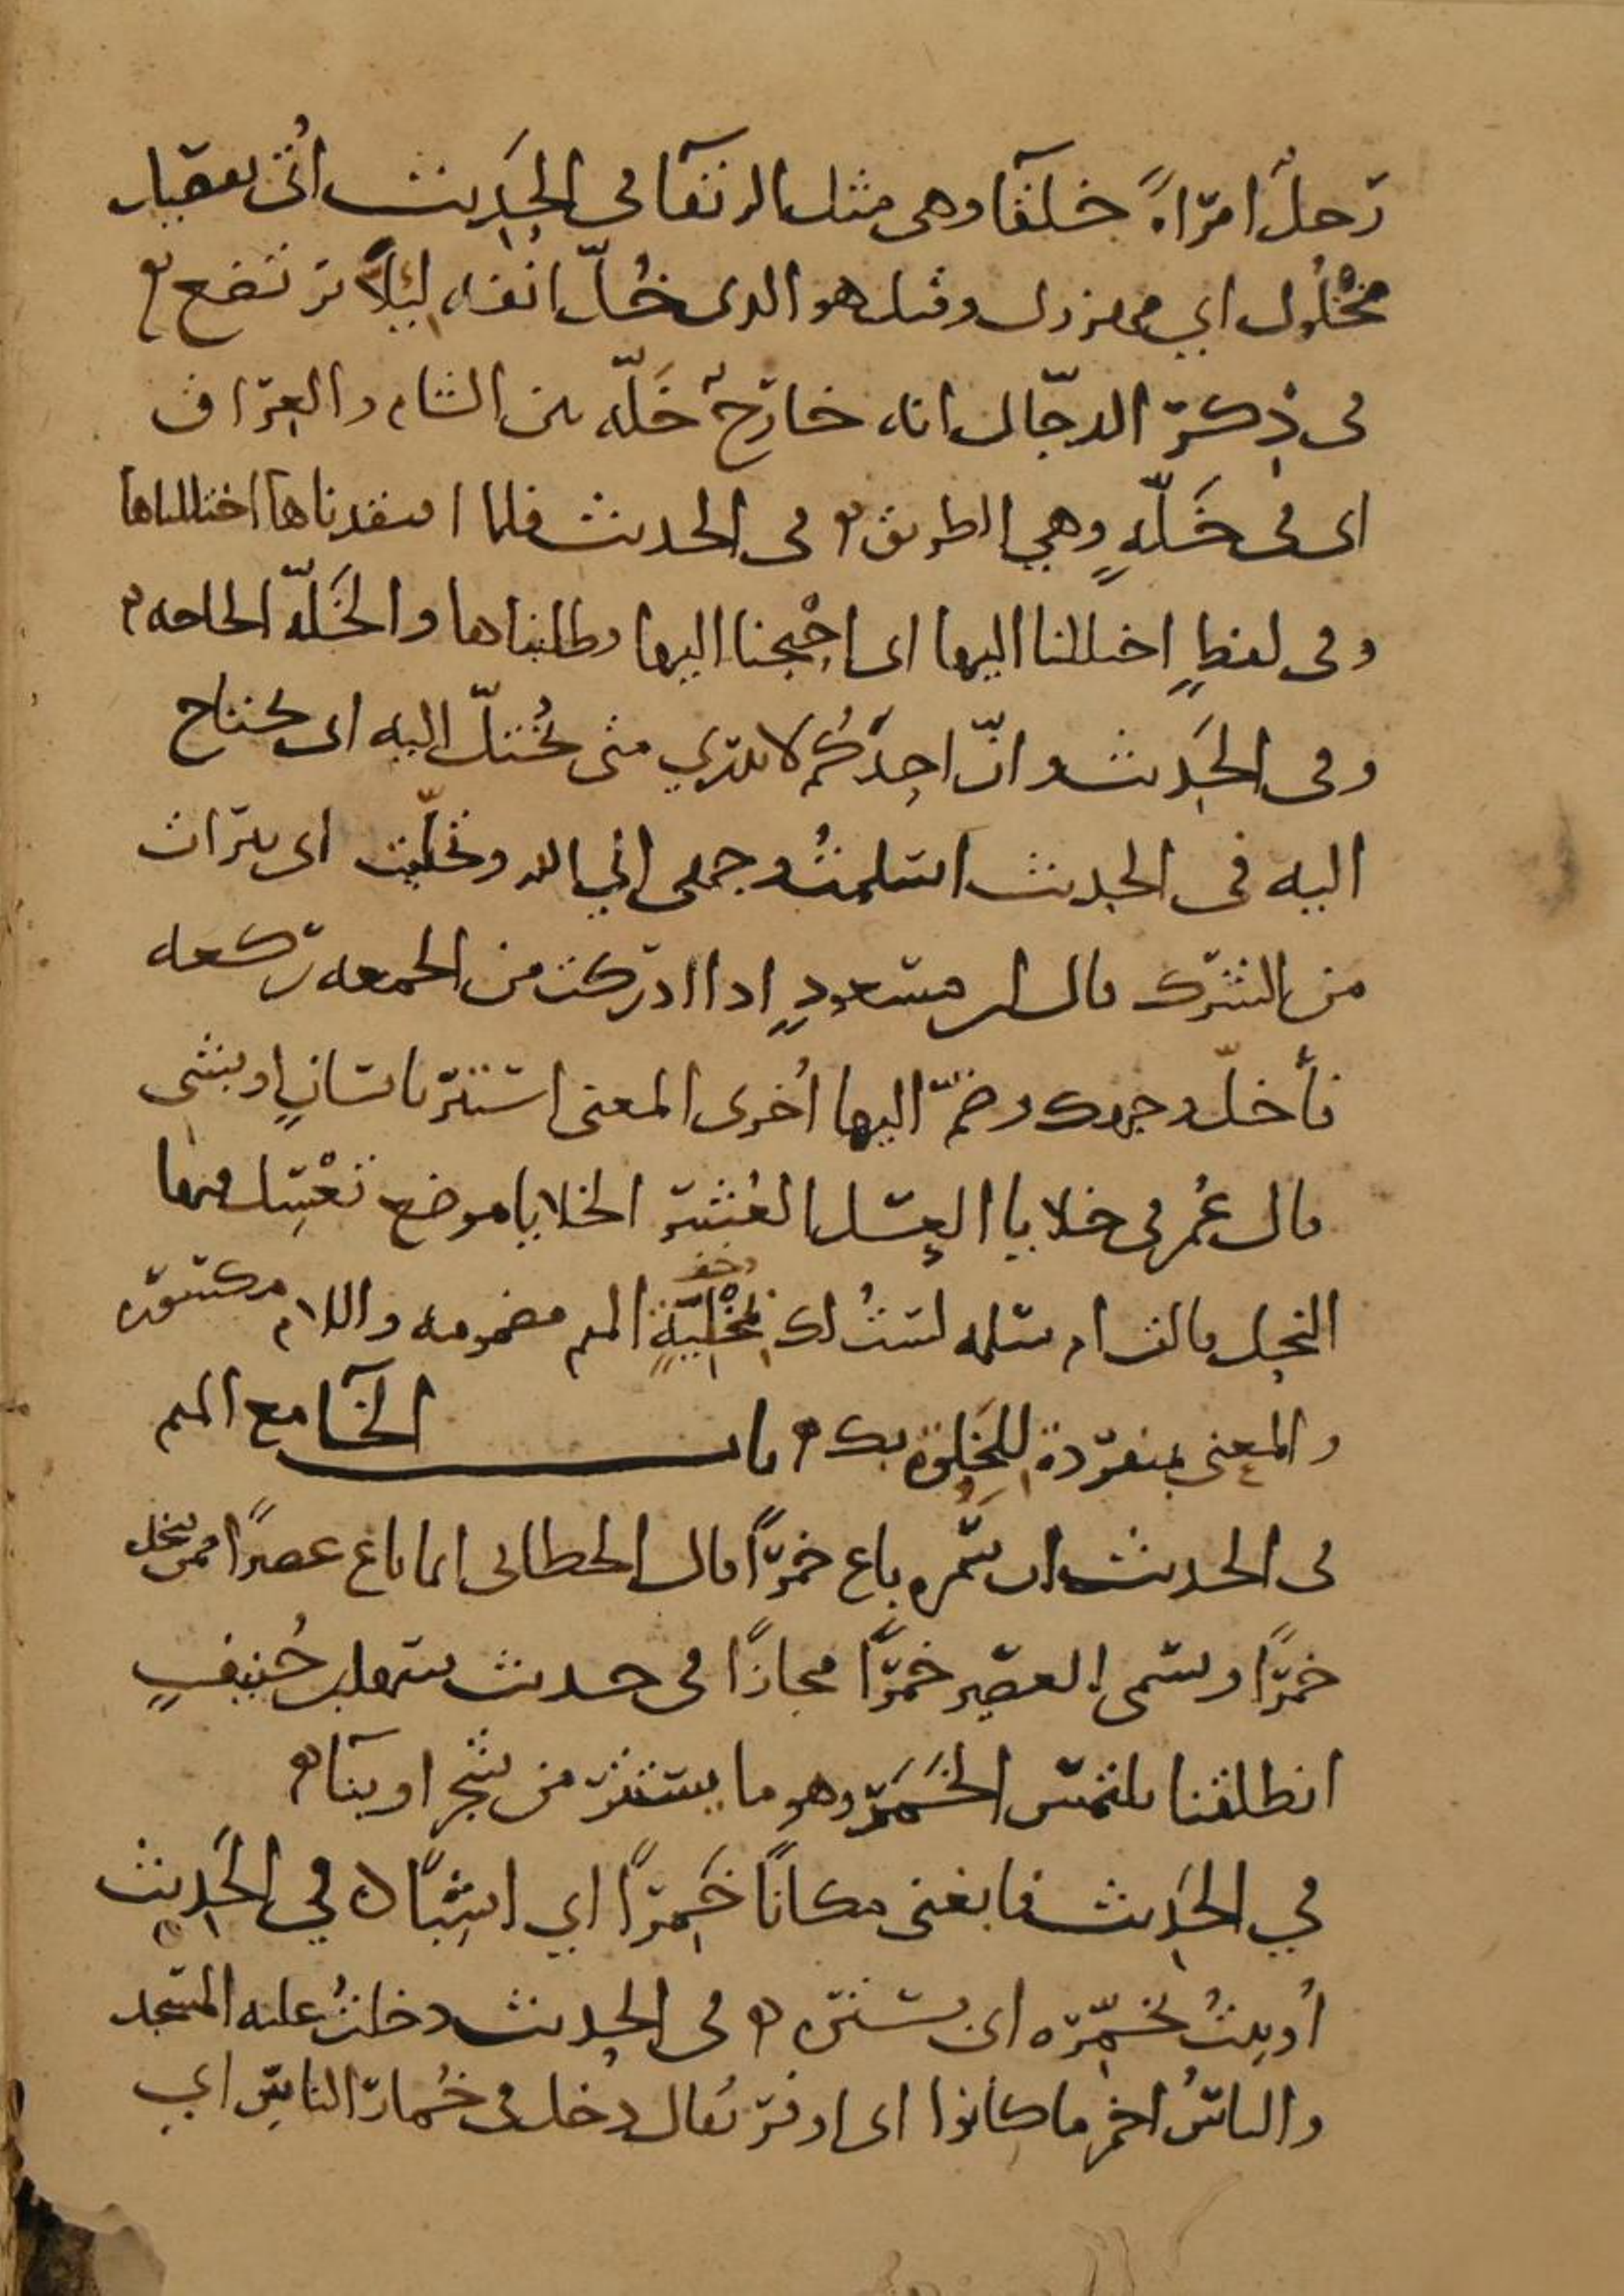 رجلٌ امرأةً خلقآ وهي مثل الرتقآ في الحديث أُتي بفصيل
مخْلُول اي مهزول وقيل هو الذي خُلّ انفه ليلاً يرتضع
في ذِكر الدجّال انه خارجٌ خَلّه بين الشام والعراق
اى في خَلّهٍ وهي الطريق في الحديث فلما افتقدناها اختللناها
وفي لفظٍ اختللنا اليها اى احْتجنا اليها وطلبناها والخَلّه الحاجه
وفي الحديث وانّ احدَكُم لا يدري متى يُختلّ اليه اى يحتاج
اليه في الحديث اسلمتُ وجهي الي الله وتخلّيت اى تبرات
من الشرك قال ابن مسعودٍ اذا ادركت من الجمعه ركعه
فأخلّ وجهك وضمّ اليها أُخرى المعنى استتر بانسانٍ او بشي
قال عُمر في خلايا العسل العُشر الخلايا موضع تعْسِل فيها
النحل قالت ام سلمه لستُ لك بمُخْلِيَةٍ الميم مضمومه واللام مكسوره
والمعنى بمنفردة للخَلوة بك باب الخآ مع الميم
في الحديث ان سَمُره باع خمرًا قال الخطابي انما باع عصيرًا ممن يتخذه
خمرًا وسمى العصير خمرًا مجازًا في حديث سهل بن حُنيفٍ
انطلقنا نلتمس الخَمَر وهو ما يستتر من شجر او بنآ
في الحديث فابغنى مكانًا خَمِرًا اي اشِبًا في الحَديث
أُوتيتُ تُخمّره اى تستره في الحديث دخلتُ عليه المسجد
والناسُ اخمر ما كانوا اى اوفر يُقال دخل في خُمار الناسِ اي